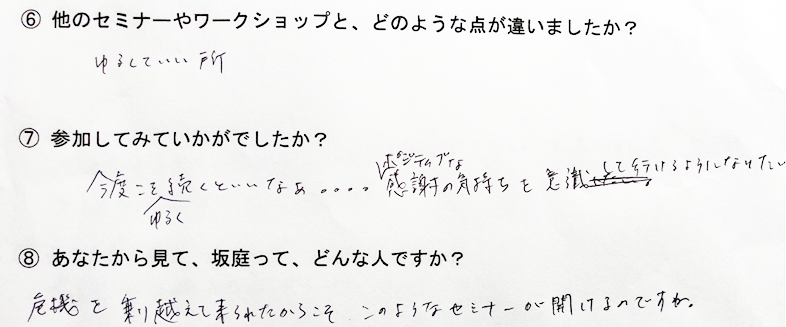 ⑥ 他のセミナーやワークショップと、どのような点が違いましたか？
ゆるくていい所
⑦ 参加してみていかがでしたか？
ポジティブな
今度こそ続くといいなぁ.... 感謝の気持ちを意識して行けるようになりたい
ゆるく
⑧ あなたから見て、坂庭って、どんな人ですか？
危機を乗り越えて来られたからこそ このようなセミナーが開けるのですね。